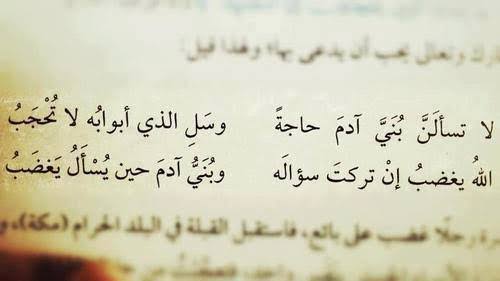 وتعالى يحب أن يدعى بها، ولهذا قيل:
لا تسألَنَّ بُنَيَّ آدمَ حاجةً وسَلِ الذي أبوابُه لا تُحْجَبُ
اللهُ يغضبُ إنْ تركتَ سؤالَه وبُنَيُّ آدمَ حين يُسْأَلُ يَغضَبُ
رجلًا غضب على بائع، فاستقبل القبلة في البلد الحرام (مكة)،